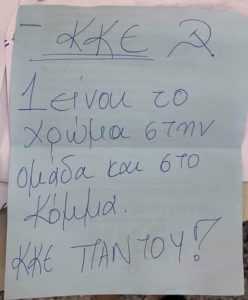 ΚΚΕ ☭
1 είναι το
χρώμα στην
ομάδα και στο
κόμμα.
ΚΚΕ ΠΑΝΤΟΥ!